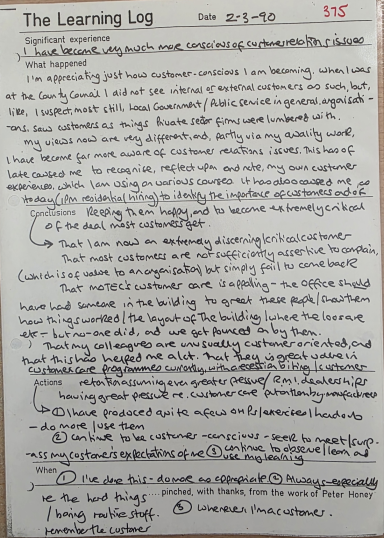 The Learning Log Date 2-3-90 375
Significant experience
I have become very much more conscious of customer relations issues
What happened
I'm appreciating just how customer-conscious I am becoming. When I was
at the County Council I did not see internal or external customers as such, but,
like, I suspect, most still, Local Government/Public service in general, organisati-
-ons. Saw customers as things Private sector firms were lumbered with.
My views now are very different, and, partly via my quality work,
I have become far more aware of customer relations issues. This has of
late caused me to recognise, reflect upon and note, my own customer
experiences, which I am using on various courses. It has also caused me
today (IPM residential hiring) to identify the importance of customers out of
Conclusions Keeping them happy, and to become extremely critical
of the deal most customers get.
→ That I am now an extremely discerning/critical customer
That most customers are not sufficiently assertive to complain,
(which is of value to an organisation) but simply fail to come back
That MOTEC's customer care is appalling - the office should
have had someone in the building to greet these people/show them
how things worked/the layout of the building/where the loos are
etc - but no-one did, and we got pounced on by them.
That my colleagues are unusually customer oriented, and
that this has helped me a lot. That they is great value in
customer care programmes currently, with a recession biting/customer
Actions retention assuming even greater pressure/R.M.I. dealerships
having great pressure re. customer care put on them by manufacturers
① I have produced quite a few OHPs/exercises/handouts
- do more/use them
② continue to be customer-conscious - seek to meet/surp-
-ass my customers expectations of me ③ continue to observe/learn and
use my learning
When
① I've done this - do more as appropriate ② Always - especially
re the hard things
.....pinched, with thanks, from the work of Peter Honey
/boring routine stuff. ③ Whenever I'm a customer.
remember the customer